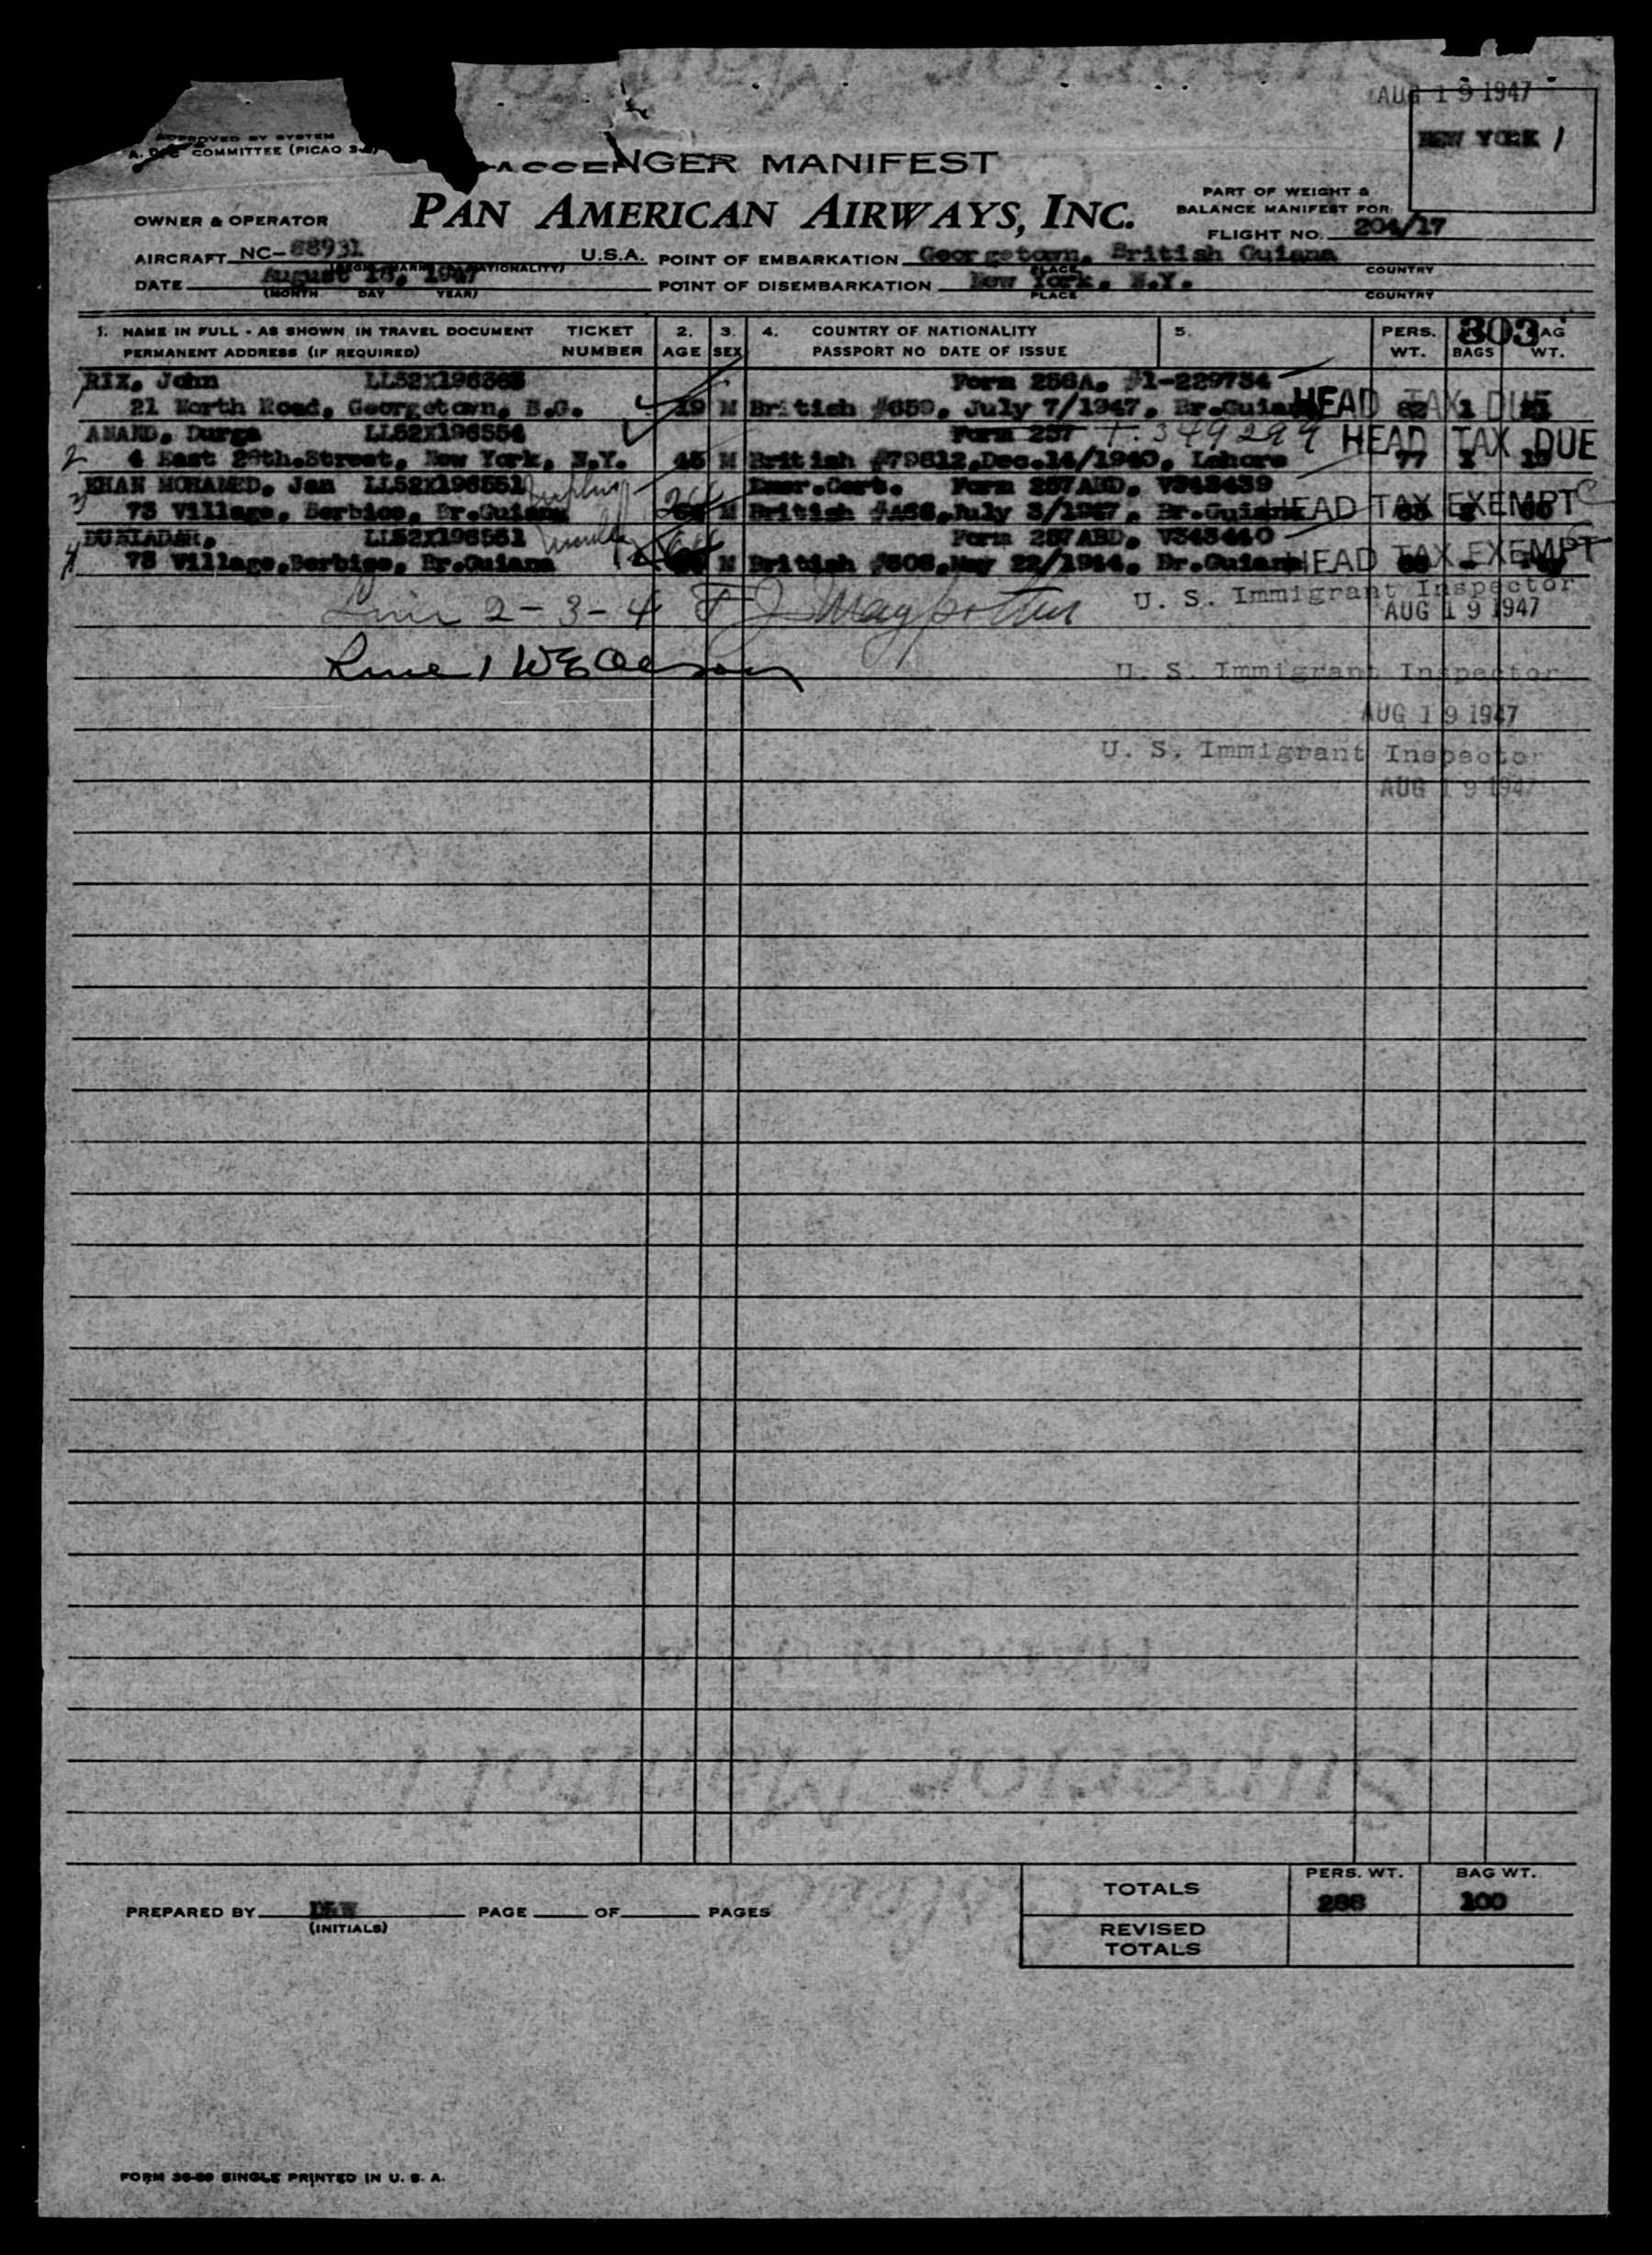 AUG 19 1947
NEW YORK 1
APPROVED BY SYSTEM
COMMITTEE (PICAO
NGER MANIFEST
PAN AMERICAN AIRWAYS, INC.
PART OF WEIGHT &
BALANCE MANIFEST FOR:
FLIGHT NO. 204/17
OWNER & OPERATOR
AIRCRAFT NC-88931 U.S.A. POINT OF EMBARKATION Georgetown, British Guiana
PLACE COUNTRY
DATE August 1947 POINT OF DISEMBARKATION New York, N.Y.
(MONTH DAY YEAR) PLACE COUNTRY
303
1. NAME IN FULL - AS SHOWN IN TRAVEL DOCUMENT TICKET 2. 3. 4. COUNTRY OF NATIONALITY 5. PERS. AG
PERMANENT ADDRESS (IF REQUIRED) NUMBER AGE SEX PASSPORT NO DATE OF ISSUE WT. BAGS WT.
RIX, John Form 256A. #1-229734
21 North Road, Georgetown, B.G. 19 M British #659, July 7/1947, Br.Guiana HEAD TAX DUE
ANAND, Durga LL52X196554 Form 257 T. 349299
2 4 East 28th.Street, New York, N.Y. 45 M British #79612,Dec.14/1940, Lahore 77 HEAD TAX DUE
KHAN MOHAMED, Jan LL52X196551 Emer.Cert. Form 257ABD. V343439
3 73 Village, Berbice, Br.Guiana M British July 3/1947, Br.Guiana HEAD TAX EXEMPT
LL52X196551 Form 257ABD. V343440
4 73 Village,Berbice, Br.Guiana M British May 22/1944, Br.Guiana HEAD TAX EXEMPT
Line 2-3-4 U. S. Immigrant Inspector
AUG 19 1947
Line 1 U. S. Immigrant Inspector
AUG 19 1947
U. S. Immigrant Inspector
AUG 19 1947
PERS. WT. BAG WT.
TOTALS 288 100
PREPARED BY PAGE OF PAGES
(INITIALS)
REVISED
TOTALS
SINGLE PRINTED IN U. S. A.